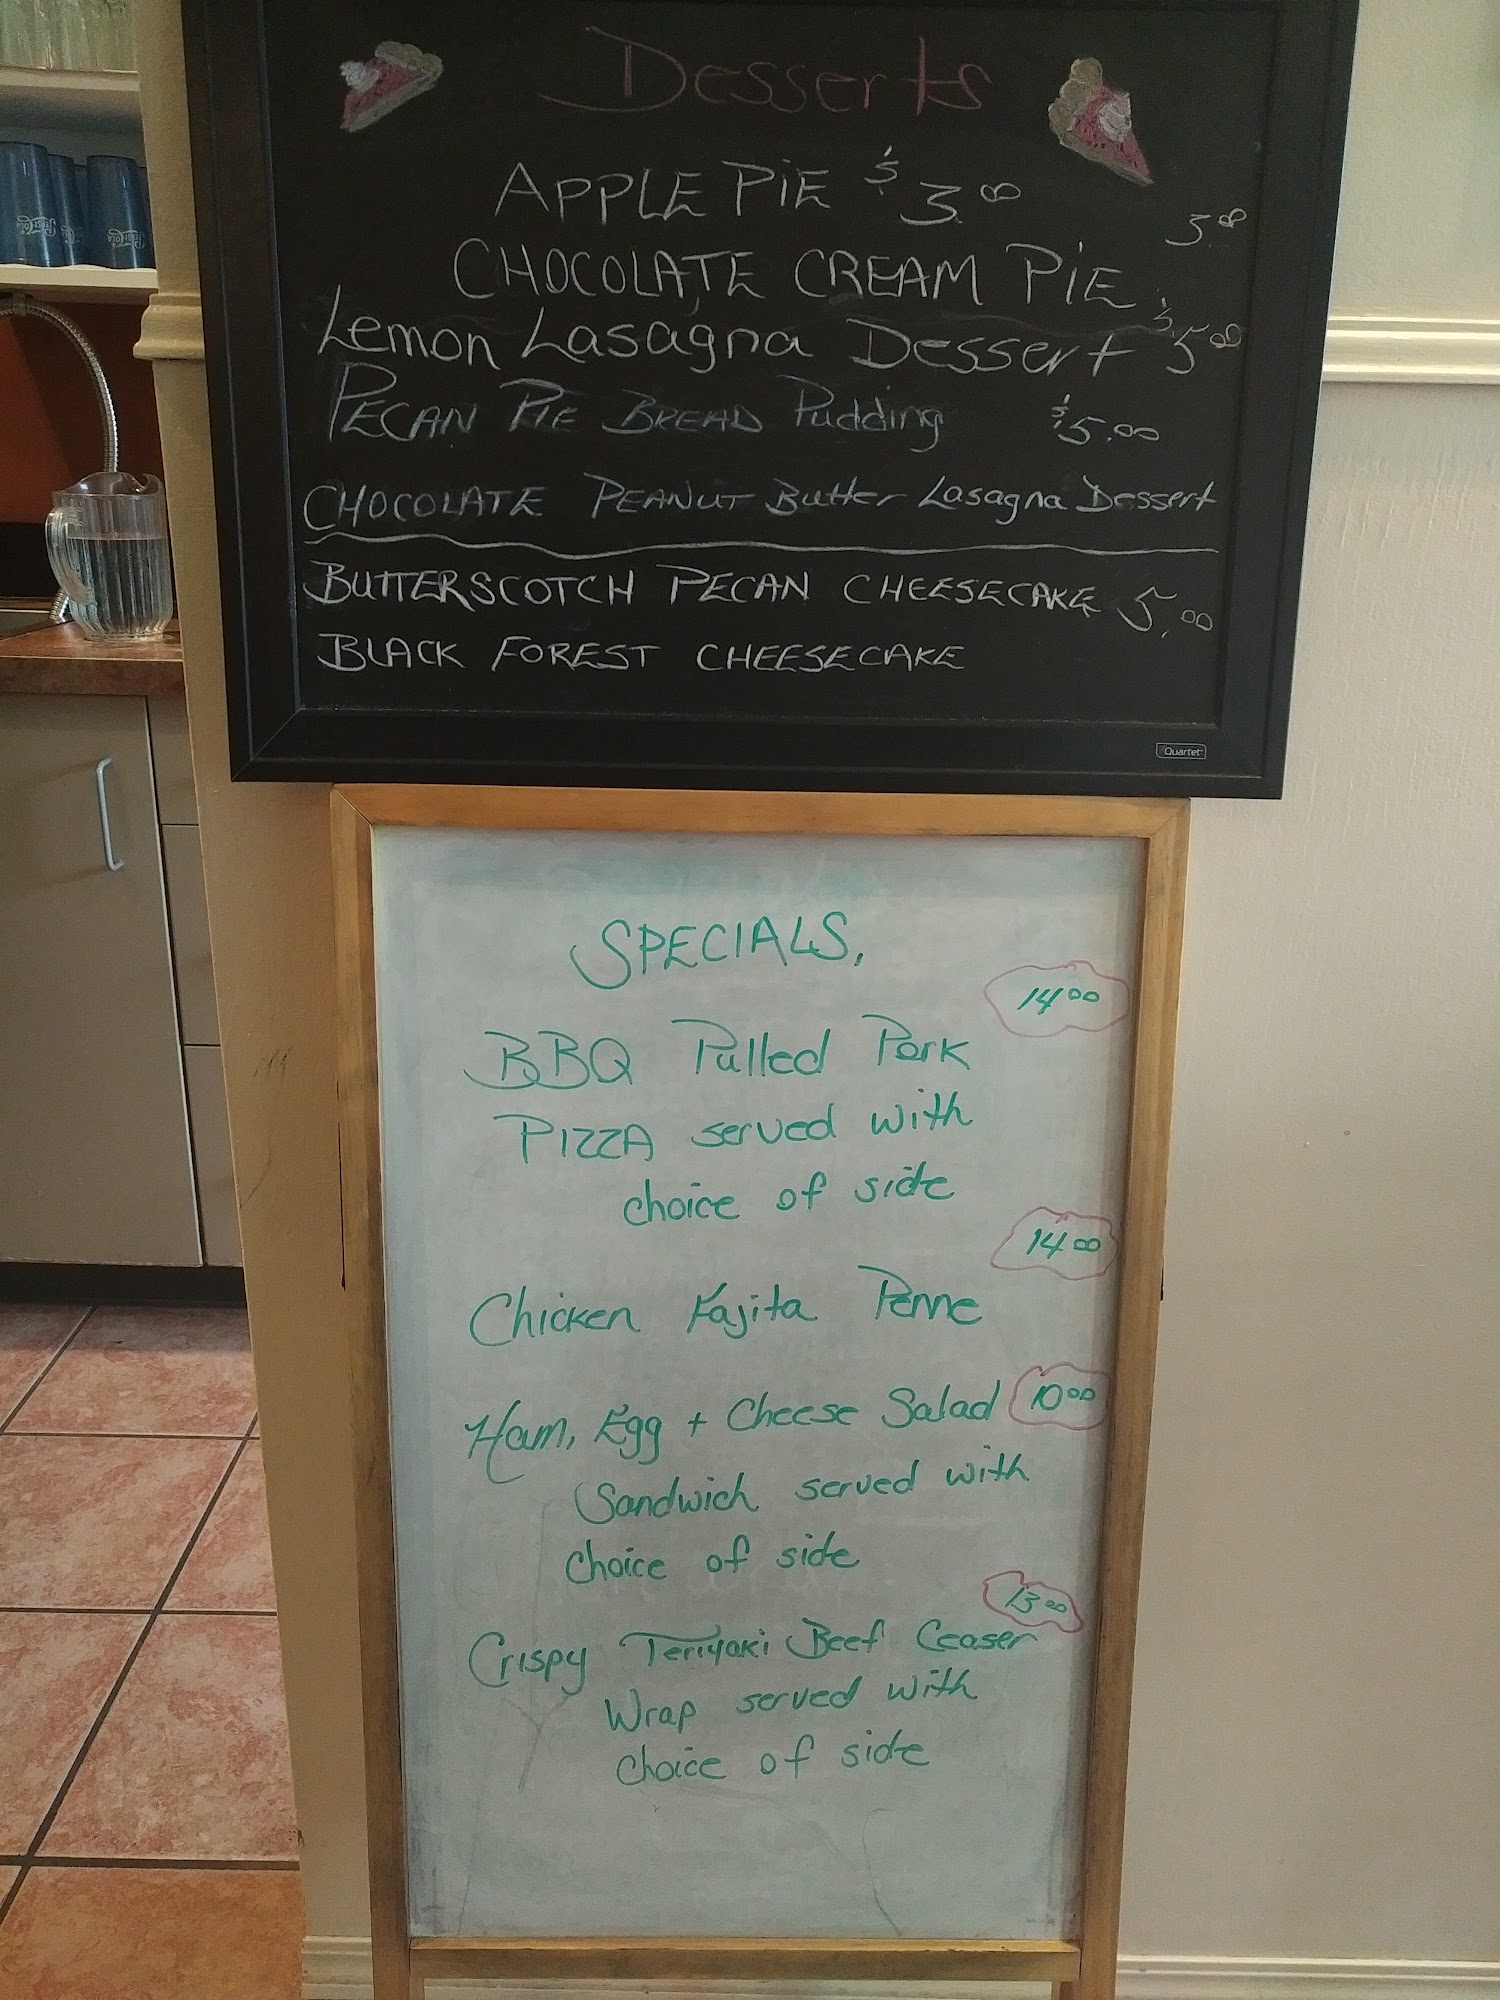 Desserts
APPLE PIE $3.00
3.00
CHOCOLATE CREAM PIE
Lemon Lasagna Dessert $5.00
PECAN PIE BREAD Pudding $5.00
CHOCOLATE PEANUT Butter Lasagna Dessert
BUTTERSCOTCH PECAN CHEESECAKE 5.00
BLACK FOREST CHEESECAKE
Quartet
SPECIALS.
14.00
BBQ Pulled Pork
PIZZA served with
choice of side
14.00
Chicken Fajita Penne
Ham, Egg + Cheese Salad 10.00
Sandwich served with
choice of side
13.00
Crispy Teriyaki Beef Ceaser
Wrap served with
choice of side